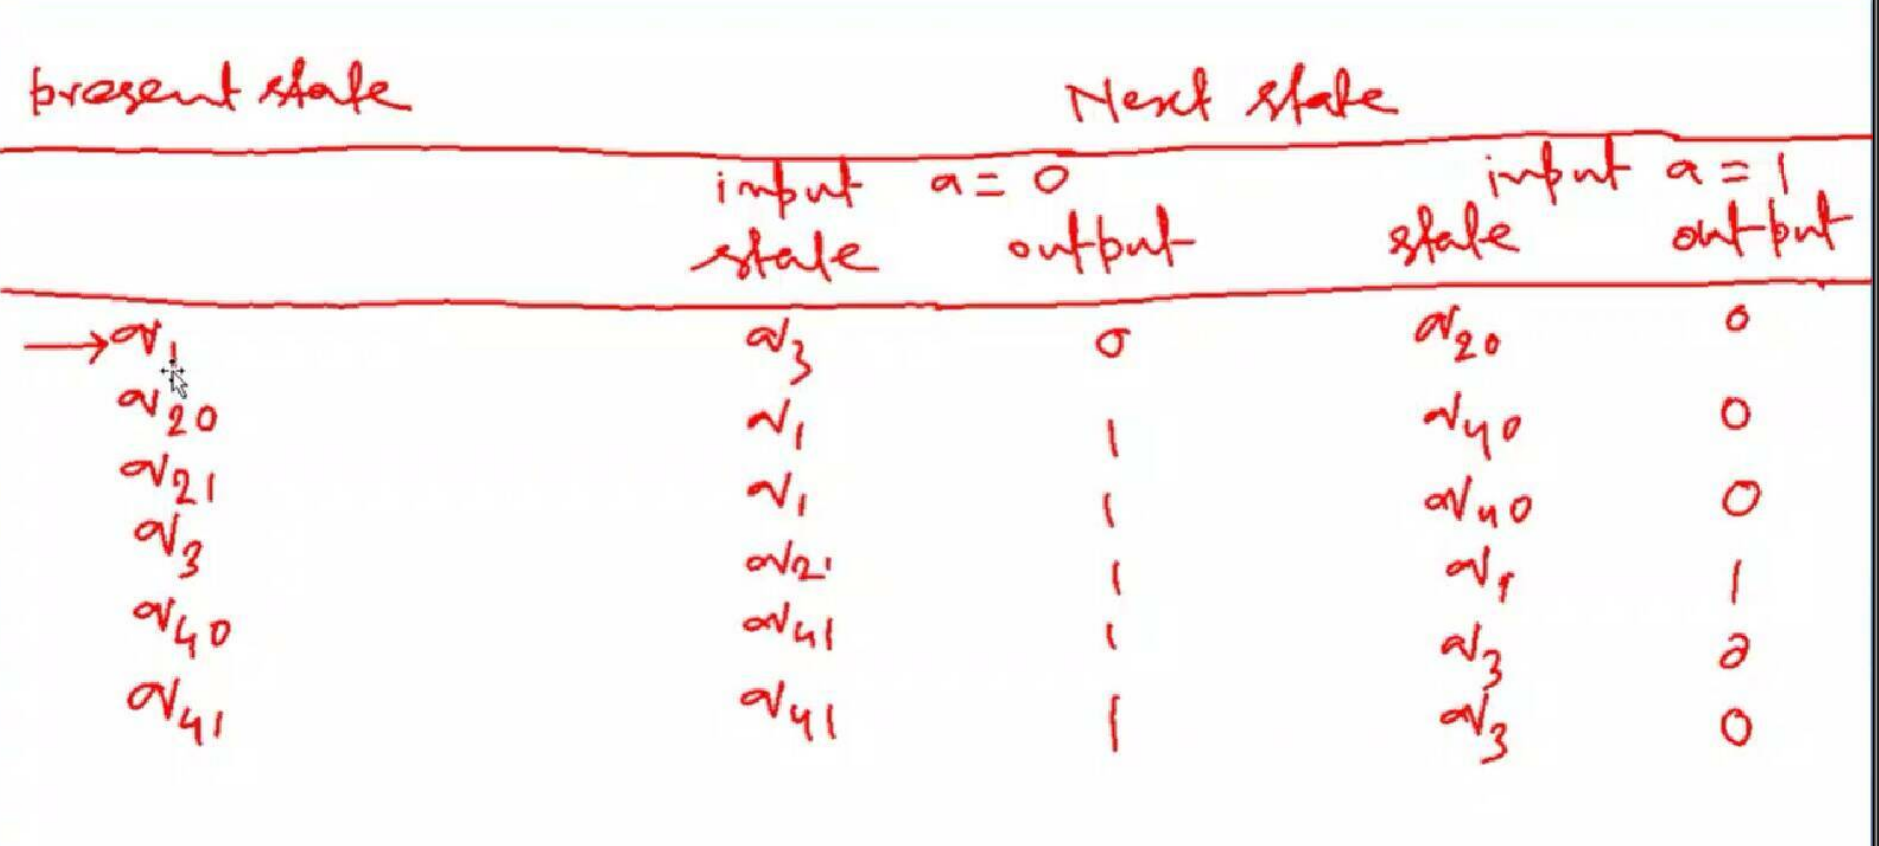 present state Next state
input a = 0 input a = 1
state output state output
→ q1 q3 0 q20 0
q20 q1 1 q40 0
q21 q1 1 q40 0
q3 q21 1 q1 1
q40 q41 1 q3 0
q41 q41 1 q3 0